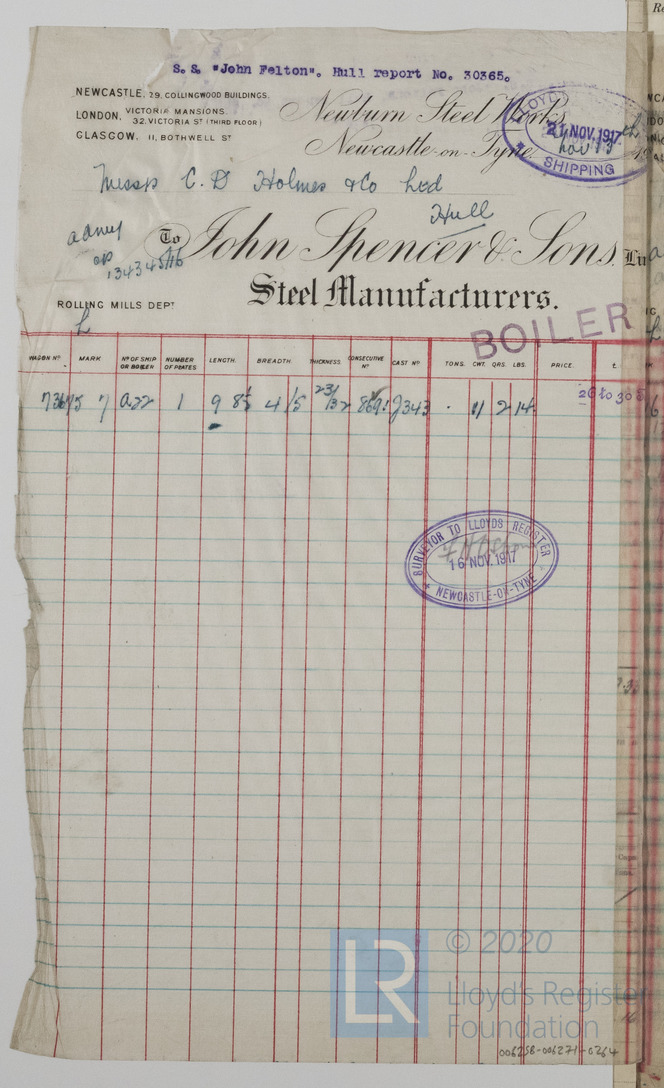 S. S. "John Felton". Hull report No. 30365.
NEWCASTLE, 29, COLLINGWOOD BUILDINGS.
LONDON, VICTORIA MANSIONS.
32, VICTORIA ST (THIRD FLOOR)
GLASGOW, 11, BOTHWELL ST
Newburn Steel Works
Newcastle-on-Tyne
LLOYDS
21 NOV. 1917
SHIPPING
Nov 13th
Messrs C. D Holmes & Co Ltd
Hull
To John Spencer & Sons, Ltd
Steel Manufacturers.
ROLLING MILLS DEPT
BOILER
WAGON No MARK No OF SHIP OR BOILER NUMBER OF PLATES LENGTH. BREADTH. THICKNESS. CONSECUTIVE No CAST No TONS. CWT. QRS. LBS. PRICE. £
A22 1 9 8½ 4 1/5 23/32 J343 . 11 2 14
26 to 30
SURVEYOR TO LLOYDS REGISTER
16 NOV. 1917
NEWCASTLE-ON-TYNE
LR © 2020
Lloyd's Register
Foundation
006258-006271-0264